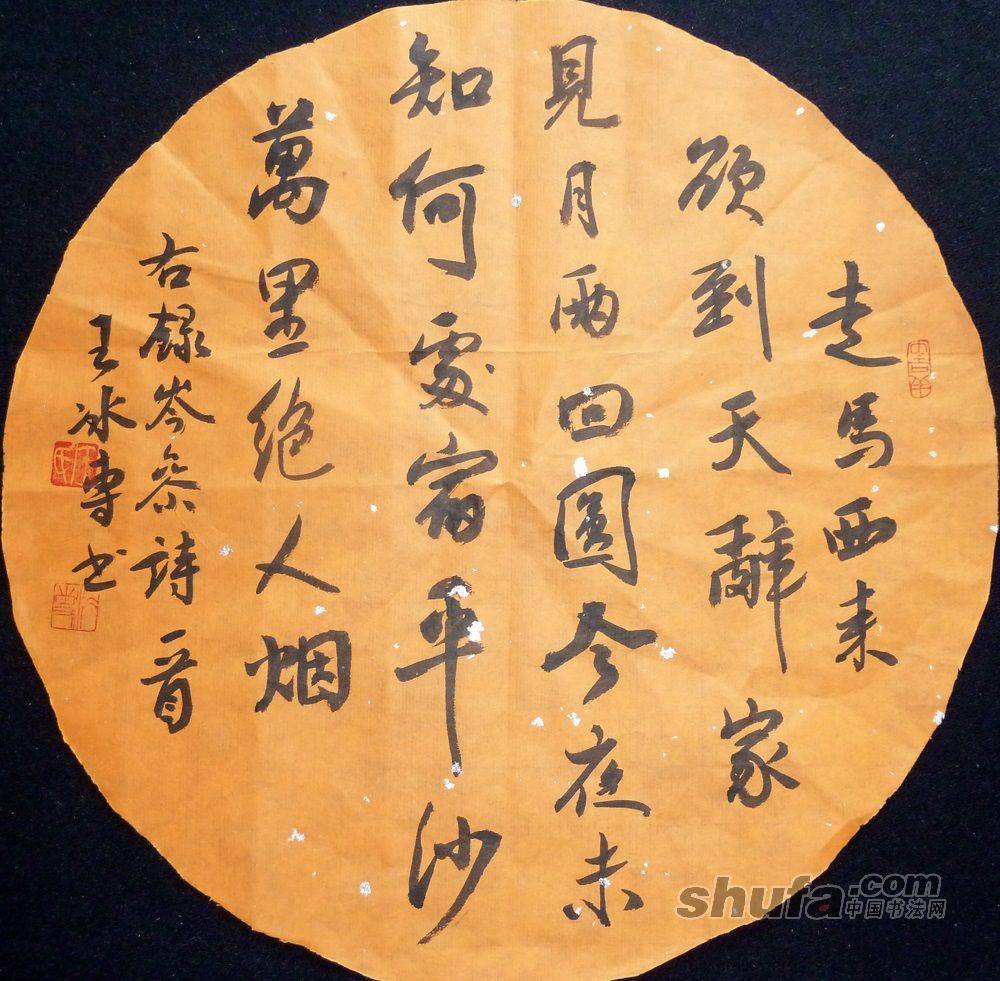 走馬西来
欲到天辭家
見月兩回圓今夜未
知何處宿平沙
萬里絶人烟
右録岑參詩一首
王冰專书
shufa.com
中国书法网